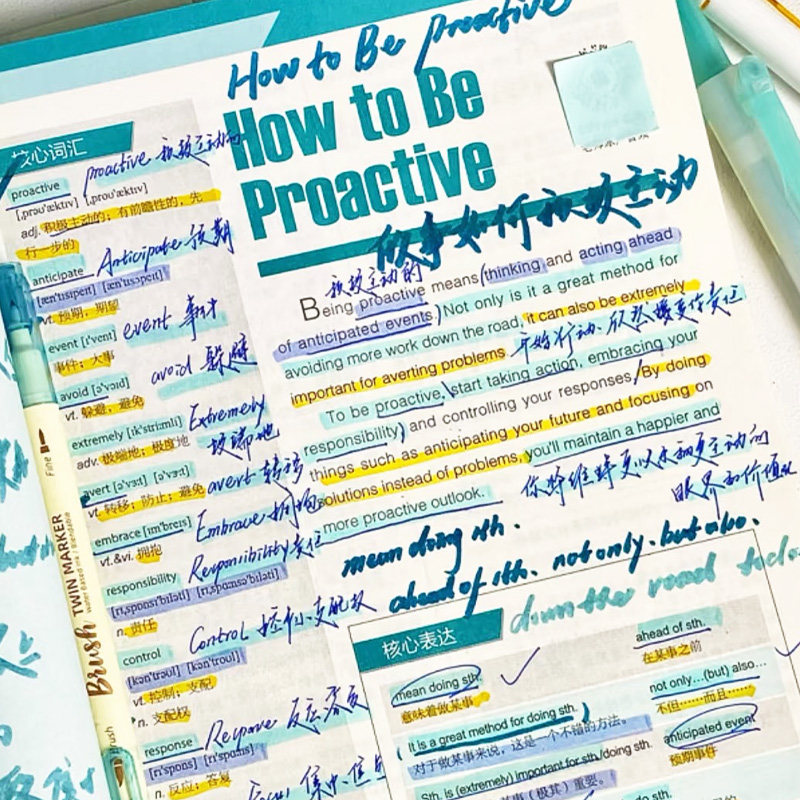 How to Be proactive
How to Be
Proactive
做事如何积极主动
核心词汇
proactive 积极主动的
proactive
[ˌprəʊˈæktɪv] [ˌproʊˈæktɪv]
adj. 积极主动的；有前瞻性的，先
行一步的
Anticipate 预期
anticipate
[ænˈtɪsɪpeɪt] [ænˈtɪsəpeɪt]
vt. 预期，期望
event 事件
event [ɪˈvent]
事件；大事
avoid 躲避
avoid [əˈvɔɪd]
vt. 躲避，避免
Extremely
极端地
extremely [ɪkˈstriːmli]
adv. 极端地；极度地
avert 转移
avert [əˈvɜːt] [əˈvɜːt]
vt. 转移；防止；避免
Embrace 拥抱
embrace [ɪmˈbreɪs]
vt.&vi. 拥抱
Responsibility 责任
responsibility
[rɪˌspɒnsɪˈbɪləti] [rɪˌspɑːnsəˈbɪləti]
n. 责任
Control 控制 支配权
control
[kənˈtrəʊl] [kənˈtroʊl]
vt. 控制；支配
n. 支配权
Response 反应 答复
response
[rɪˈspɒns] [rɪˈspɑːns]
n. 反应；答复
积极主动的
Being proactive means thinking and acting ahead
of anticipated events. Not only is it a great method for
avoiding more work down the road, it can also be extremely
important for averting problems
开始行动
To be proactive, start taking action, embracing your
responsibility and controlling your responses. By doing
things such as anticipating your future and focusing on
solutions instead of problems, you'll maintain a happier and
more proactive outlook.
mean doing sth.
ahead of sth. not only. but also.
down the road
核心表达
mean doing sth.
意味着做某事
ahead of sth.
在某事之前
It is a great method for doing sth.
对于做某事来说，这是一个不错的方法。
not only...(but) also...
不但……而且……
anticipated event
预期事件
Sth. is (extremely) important for sth./doing sth.
Fine
Brush TWIN MARKER